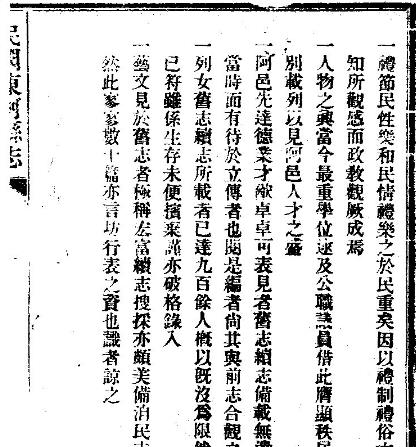 一禮節民性樂和民情禮樂之於民重矣因以禮制禮俗
知所觀感而政教觀厥成焉
一人物之興當今最重學位逮及公職議員借此膺顯秩
別載列以見阿邑人才之盛
一阿邑先達德業才猷卓卓可表見者舊志續志備載無
當時面有待於立傳者也閱是編者尚其與前志合觀
一列女舊志續志所載者已達九百餘人概以既沒爲限
已符雖係生存未便擯棄謹亦破格錄入
一藝文見於舊志者極稱宏富續志搜採亦頗美備洎民
然此寥寥數十篇亦言坊行表之資也識者諒之
民國東阿縣志